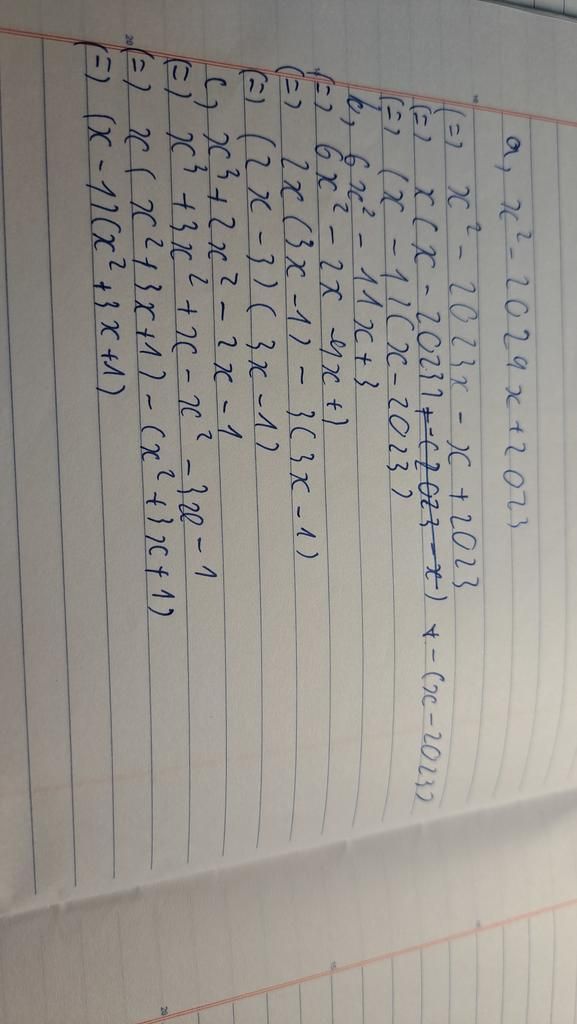 a, x² - 2024x + 2023
(=) x² - 2023x - x + 2023
(=) x(x - 2023) + -(x - 2023)
(=) (x - 1)(x - 2023)
b, 6x² - 11x + 3
(=) 6x² - 2x - 9x + 3
(=) 2x(3x - 1) - 3(3x - 1)
(=) (2x - 3)(3x - 1)
c, x³ + 2x² - 2x - 1
(=) x³ + 3x² + x - x² - 3x - 1
(=) x(x² + 3x + 1) - (x² + 3x + 1)
(=) (x - 1)(x² + 3x + 1)